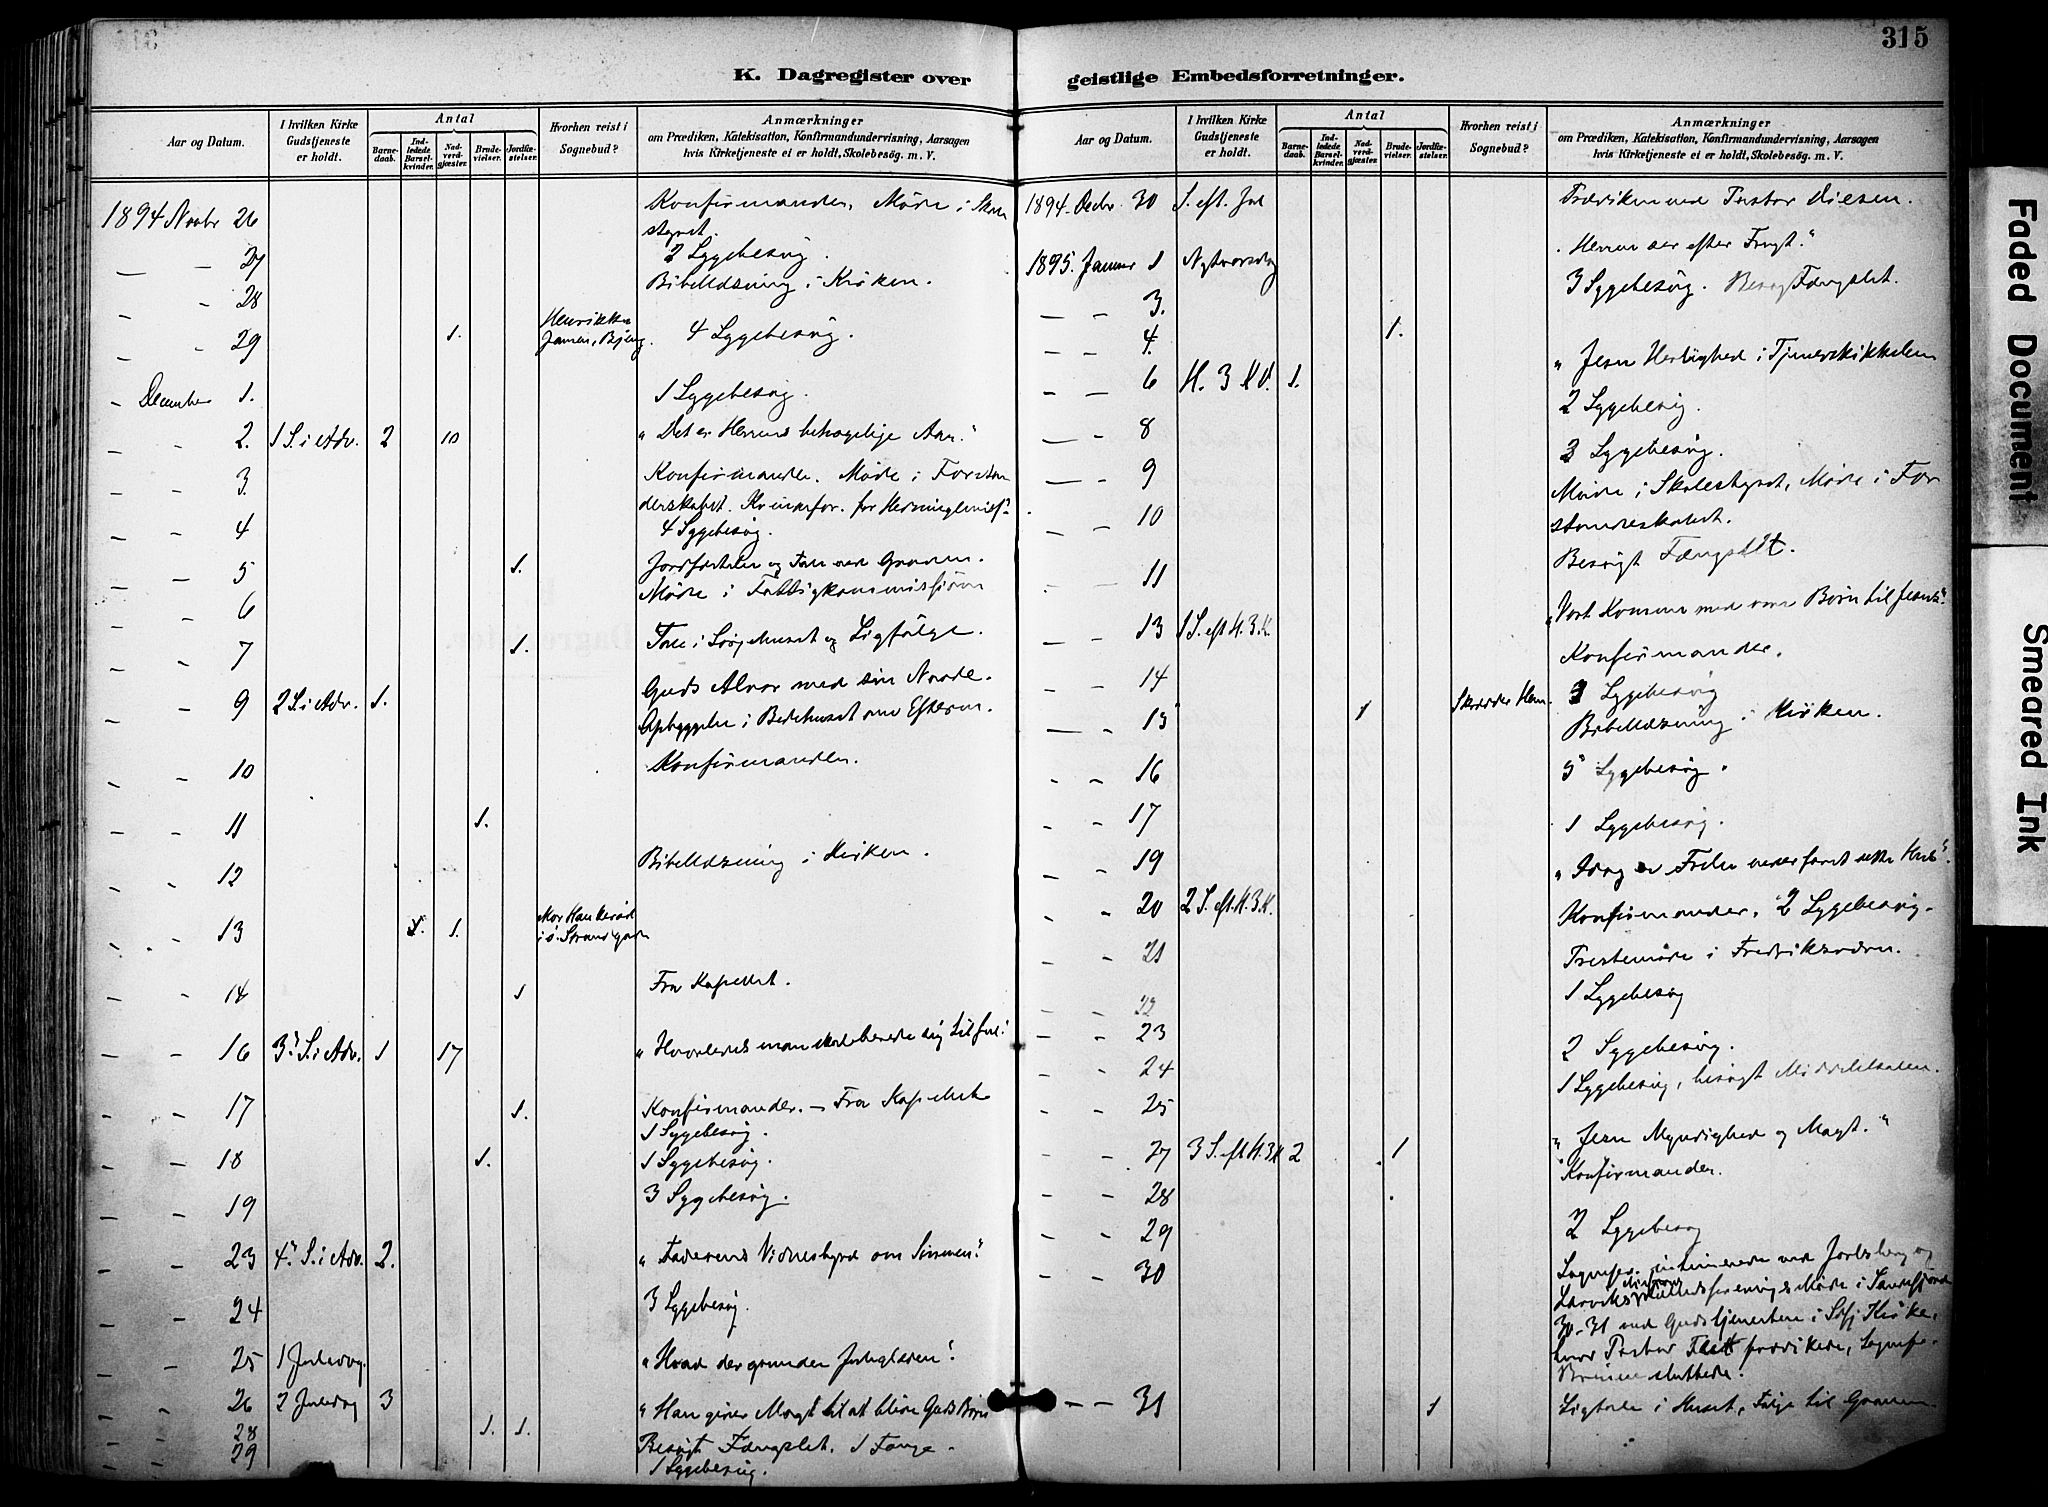 315
K. Dagregister over geistlige Embedsforretninger.
Aar og Datum.
I hvilken Kirke Gudstjeneste er holdt.
Antal
Barne-daab.
Ind-ledede Barsel-kvinder.
Nad-verd-gjæster.
Brude-vielser.
Jordfæ-stelser.
Hvorhen reist i Sognebud?
Anmærkninger
om Prædiken, Katekisation, Konfirmandundervisning, Aarsagen
hvis Kirketjeneste ei er holdt, Skolebesög. m. V.
1894 Novbr 26 Konfirmander, Møde i Skole
styret.
— — 27 2 Sygebesøg.
- 28 Bibellæsning i Kirken.
- - 29 1. 4 Sygebesøg.
- December 1. 1 Sygebesøg.
- - 2. 1 S. i Adv. 2 10 "Det er Herrens behagelige Aar."
- - 3. Konfirmander. Møde i Forstan
derskabet.
- - 4 4 Sygebesøg.
- - 5 1. Jordfæstelse og Tale ved Graven.
- - 6 Møde i Fattigkommissionen
- - 7 1. Tale i Sørgehuset og Ligfølge.
- - 9 2 S. i Adv. 1. Guds Alvor med sin Naade.
Opbyggelse i Bedehuset om Efterm.
- - 10 Konfirmander.
- - 11 1.
- - 12 Bibellæsning i Kirken.
- - 13 1. 1.
- - 14 1 Fra Kapellet.
- - 16 3. S. i Adv. 1 17 "Hvorledes man skal berede sig til Jul."
- - 17 1. Konfirmander. — Fra Kapellet
1 Sygebesøg.
- - 18 1. 1 Sygebesøg.
- - 19 3 Sygebesøg.
- - 23 4. S. i Adv. 2. "Faderens Vidnesbyrd om Sønnen."
- - 24 3 Sygebesøg.
- - 25 1 Juledag. "Hvad der grunder Juleglæden."
- - 26 2 Juledag 3 "Han giver Magt til at blive Guds Børn
- - 28 1. 1. Besøgt Fængslet. 1 Fange.
- - 29 1 Sygebesøg.
Aar og Datum.
I hvilken Kirke Gudstjeneste er holdt.
Antal
Barne-daab.
Ind-ledede Barsel-kvinder.
Nad-verd-gjæster.
Brude-vielser.
Jordfæ-stelser.
Hvorhen reist i Sognebud?
Anmærkninger
om Prædiken, Katekisation, Konfirmandundervisning, Aarsagen
hvis Kirketjeneste ei er holdt, Skolebesög. m. V.
1894. Decbr. 30 S. eft. Jul Prædiken ved Pastor Diesen.
1895. Januar 1 Nytaarsdag "Herren ser efter Frugt."
— - 3. 3 Sygebesøg. Besøgt Fængslet.
- - 4. 1.
- — 6 H. 3 K. 1. "Jesu Herlighed i Tjenerskikkelsen
— - 8 2 Sygebesøg.
— - 9 3 Sygebesøg.
- - 10 Møde i Skolestyret, Møde i For
standerskabet.
- — 11 Besøgt Fængslet.
— - 13 1 S. eft H. 3. K. "Vort Komme med vore Børn til Jesus."
- - 14 Konfirmander.
— - 15 1 3 Sygebesøg
Bibellæsning i Kirken.
- - 16 5 Sygebesøg.
- - 17 1 Sygebesøg.
- - 19
- 20 2 S. eft. H. 3. K. "Idag er Frelse vederfaret dette Hus".
- - 21 Konfirmander. 2 Sygebesøg.
- - 22 Prestemøde i Fredriksværn.
- - 23 1 Sygebesøg
- - 24 2 Sygebesøg.
- - 25 1 Sygebesøg, besøgt Middelskolen.
- - 27 3 S. eft H. 3 K 2 1 "Jesu Myndighed og Magt."
- - 28 Konfirmander.
- - 29 2 Sygebesøg
- - 30 Sognepr. ved Jarlsberg og
Larviks Møde i Sandefjord
30-31 ved Gudstjenesten i Kirke,
hvor Pastor prædikede, Sognepr.
sluttede.
- - 31 1 Ligtale i Huset, Følge til Graven.
Faded Document
Smeared Ink